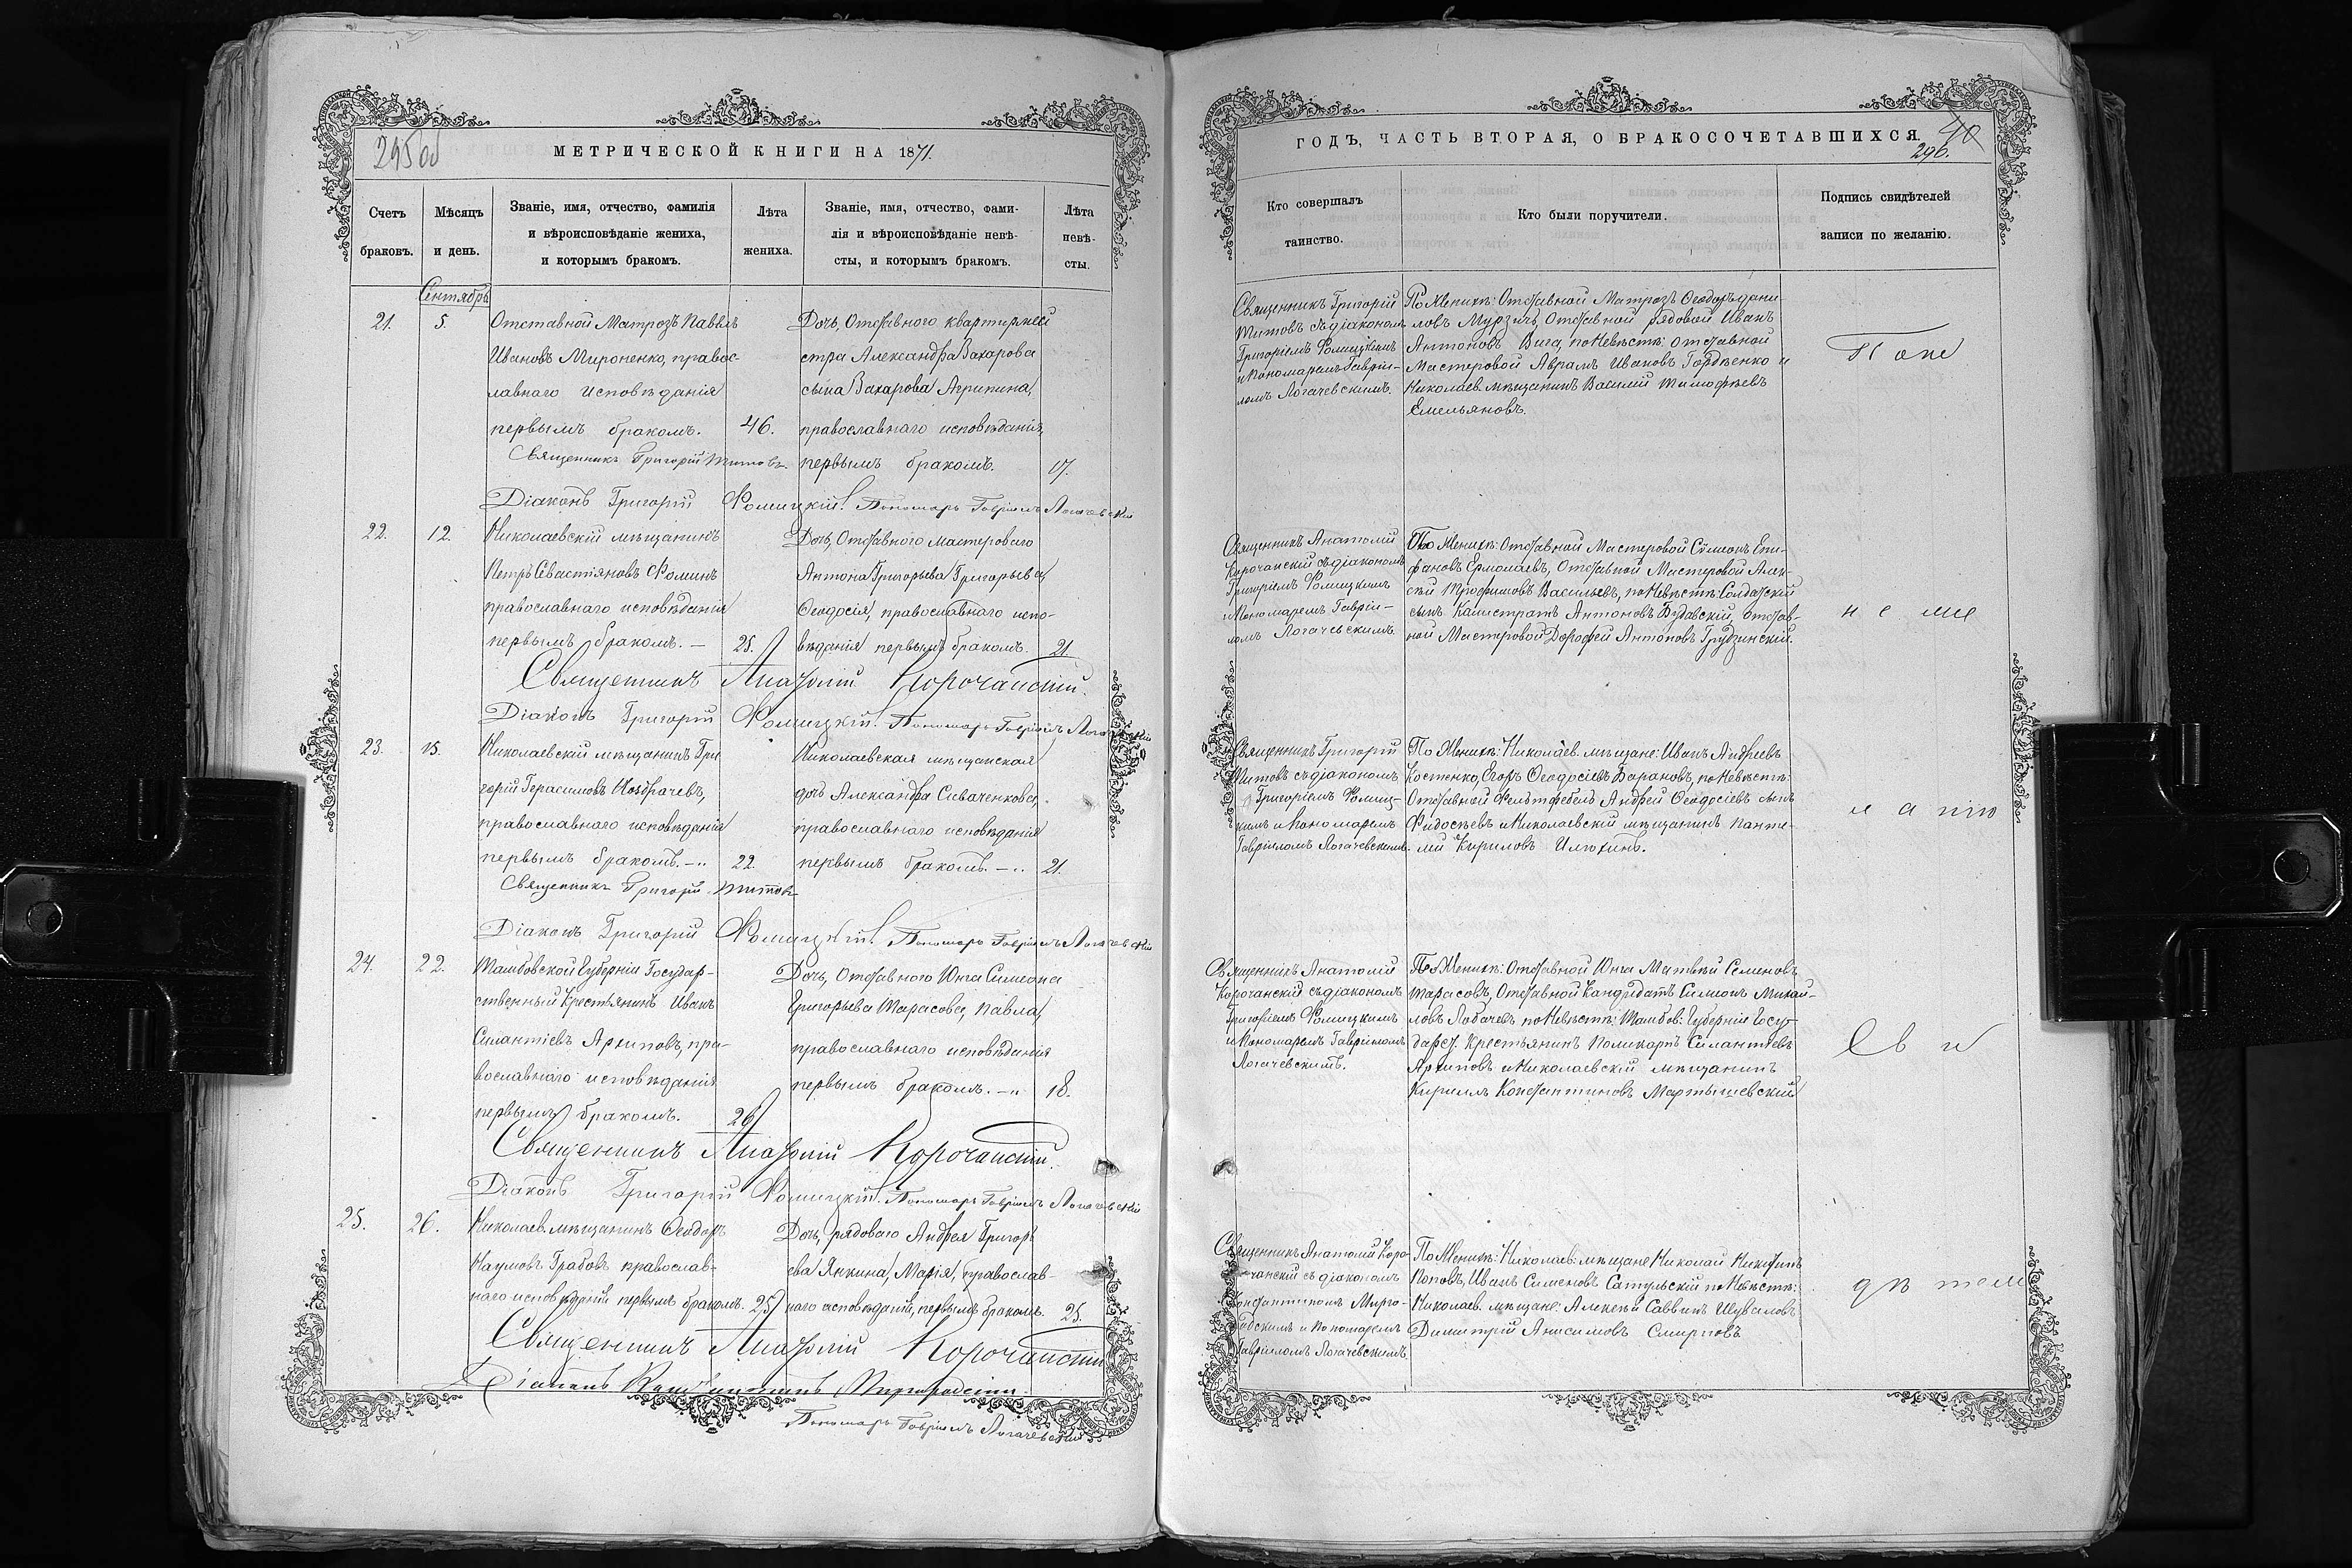 295 об
МЕТРИЧЕСКОЙ КНИГИ НА 1871.
Счетъ
браковъ.
Мѣсяцъ
и день.
Званіе, имя, отчество, фамилія
и вѣроисповѣданіе жениха,
и которымъ бракомъ.
Лѣта
жениха.
Званіе, имя, отчество, фами-
лія и вѣроисповѣданіе невѣ-
сты, и которымъ бракомъ.
Лѣта
невѣ-
сты.
Сентябрь
21.
5.
Отставной Матрозъ Павелъ
Ивановъ Мироненко, правос-
лавнаго исповѣданія
первымъ бракомъ.
46.
Дочь, Отставного квартирмей
стра Александра Захарова
сына Захарова Агрипина,
православнаго исповѣданія,
первымъ бракомъ.
17.
Священникъ Григорій Титовъ
Діаконъ Григорій Фомицкій. Пономарь Гавріилъ Логачевскій
22.
12.
Николаевскій мѣщанинъ
Петръ Севастьяновъ Фоминъ
православнаго исповѣданія
первымъ бракомъ. —
25.
Дочь, Отставного мастероваго
Антона Григорьева Григорьева,
Ѳеодосія, православнаго испо-
вѣданія первымъ бракомъ.
21.
Священникъ Анатолій Корочанскій.
Діаконъ Григорій Фомицкій. Пономарь Гавріилъ Логачевскій
23.
15.
Николаевскій мѣщанинъ Гри
горій Герасимовъ Ноздрачевъ,
православнаго исповѣданія
первымъ бракомъ. —
22.
Николаевская мѣщанская
дочь Александра Сиваченкова,
православнаго исповѣданія
первымъ бракомъ. —
21.
Священникъ Григорій Титовъ
Діаконъ Григорій Фомицкій. Пономарь Гавріилъ Логачевскій
24.
22.
Тамбовской Губерніи Государ-
ственный Крестьянинъ Иванъ
Силантіевъ Архиповъ, пра-
вославнаго исповѣданія
первымъ бракомъ.
26.
Дочь, Отставного Юнга Симеона
Григорьева Тарасова, Павла,
православнаго исповѣданія
первымъ бракомъ. —
18.
Священникъ Анатолій Корочанскій.
Діаконъ Григорій Фомицкій. Пономарь Гавріилъ Логачевскій
25.
26.
Николаев. мѣщанинъ Ѳеодоръ
Наумовъ Грабовъ православ-
наго исповѣданія первымъ бракомъ.
25
Дочь, рядоваго Андрея Григорь
ева Янкина, Марія, православ-
наго исповѣданія, первымъ бракомъ.
25.
Священникъ Анатолій Корочанскій
Діаконъ Константинъ Миргородскій
Пономарь Гавріилъ Логачевскій
ГОДЪ, ЧАСТЬ ВТОРАЯ, О БРАКОСОЧЕТАВШИХСЯ
40
296.
Кто совершалъ
таинство.
Кто были поручители.
Подпись свидѣтелей
записи по желанію.
Священникъ Григорій
Титовъ съ діакономъ
Григоріемъ Фомицкимъ
и Пономаремъ Гавріи-
ломъ Логачевскимъ.
По Женихѣ: Отставной Матрозъ Ѳеодоръ Дани
ловъ Мурзичъ, Отставной рядовой Иванъ
Антоновъ Вига, по Невѣстѣ: отставной
Мастеровой Аврамъ Ивановъ Гордѣенко и
Николаев. мѣщанинъ Василій Тимофѣевъ
Емельяновъ.
Поне
Священникъ Анатолій
Корочанскій съ діакономъ
Григоріемъ Фомицкимъ
и Пономаремъ Гавріи-
ломъ Логачевскимъ.
По Женихѣ: Отставной Мастеровой Симеонъ Епи-
фановъ Ермолаевъ, Отставной Мастеровой Алек-
сѣй Трофимовъ Васильевъ, по Невѣстѣ: Солдатскій
сынъ Калистратъ Антоновъ Будавскій, отстав-
ной Мастеровой Дорофей Антоновъ Грудзинскій.
н е мѣ
Священникъ Григорій
Титовъ съ діакономъ
Григоріемъ Фомиц-
кимъ и Пономаремъ
Гавріиломъ Логачевскимъ.
По Женихѣ: Николаев. мѣщане: Иванъ Андреевъ
Костенко, Егоръ Ѳеодосіевъ Барановъ, по Невѣстѣ:
Отставной Фельтфебель Андрей Ѳеодосіевъ сынъ
Фидосѣевъ и Николаевскій мѣщанинъ Панте-
лій Кириловъ Илюхинъ.
н а пію
Священникъ Анатолій
Корочанскій съ діакономъ
Григоріемъ Фомицкимъ
и Пономаремъ Гавріиломъ
Логачевскимъ.
По Женихѣ: Отставной Юнга Матвѣй Семеновъ
Тарасовъ, Отставной Кандидатъ Симеонъ Михай-
ловъ Лобачевъ по Невѣстѣ: Тамбов: Губерніи Госу-
дарст. Крестьянинъ Поликарпъ Силантіевъ
Архиповъ и Николаевскій мѣщанинъ
Кириллъ Константиновъ Мартышевскій
Св и
Священникъ Анатолій Коро-
чанскій съ діакономъ
Константиномъ Мирго-
родскимъ и Пономаремъ
Гавріиломъ Логачевскимъ.
По Женихѣ: Николаев: мѣщане Николай Никитинъ
Поповъ, Иванъ Сименовъ Сатульскій по Невѣстѣ:
Николаев. мѣщане: Алексѣй Саввинъ Шуваловъ
Димитрій Анисимовъ Смирновъ
дѣ тел